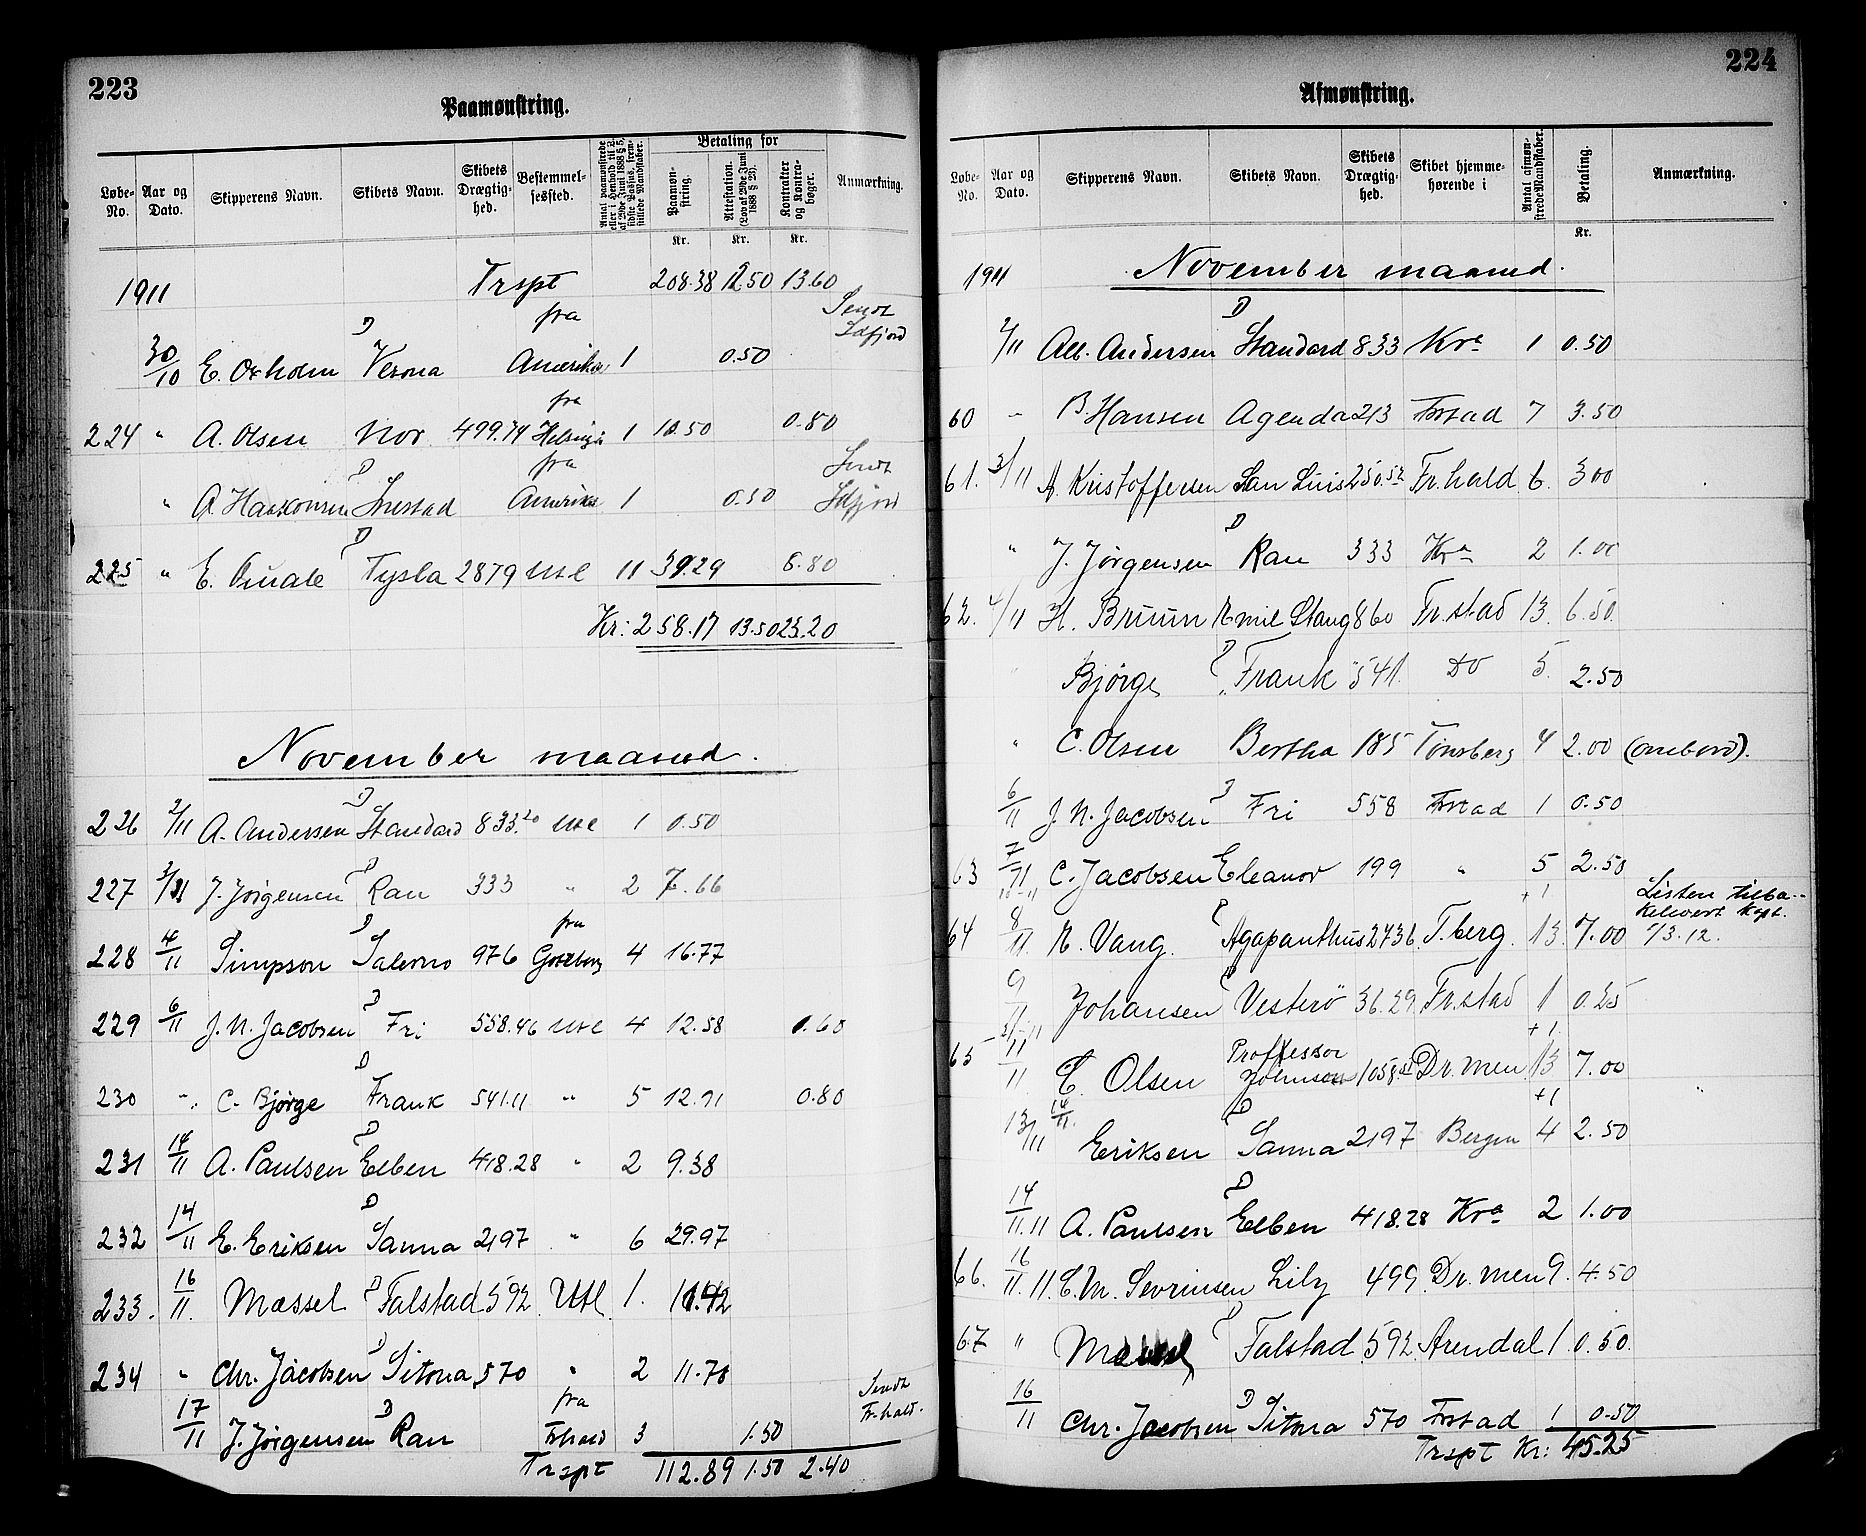 223
Paamønstring.
Løbe-No. | Aar og Dato. | Skipperens Navn. | Skibets Navn. | Skibets Drægtig-hed. | Bestemmel-sessted. | Antal paamønstrede eller i Henhold til L. af 29de Juni 1888 § 5, sidste Passus, frem-stillede Mandskaber. | Betaling for | Paamøn-string. Kr. | Attestation. (Lov af 29de Juni 1888 § 28). Kr. | Kontrakter og Kontra-bøger. Kr. | Anmærkning.
1911 Trspt 208.38 12.50 13.60
30/10 E. Oxholm D Verona fra Amerika 1 0.50 Sendt Idfjord
224 " A. Olsen Nor 499.74 fra 1 10.50 0.80
" A. Haakonsen D Amerika 1 0.50 Sendt Idfjord
225 " E. D Tysla 2879 Utl 11 39.29 8.80
Kr: 258.17 13.50 23.20
November maaned.
226 2/11 A. Andersen D Standard 833.20 Utl 1 0.50
227 3/11 J. Jørgensen D Ran 333 " 2 7.66
228 4/11 Simpson D Salerno 976 fra Gøteborg 4 16.77
229 6/11 J. N. Jacobsen D Fri 558.46 Utl 4 12.58 1.60
230 " C. Bjørge D Frank 541.11 " 5 12.91 0.80
231 14/11 A. Paulsen D Elben 418.28 " 2 9.38
232 14/11 E. Eriksen D Sanna 2197 " 6 29.97
233. 16/11. Massel D Falstad 592 Utl 1. 10.42
234 " Chr. Jacobsen D Sitona 570 " 2 11.70
17/11 J. Jørgensen D Ran fra Frhald 3 1.50 Sendt Fr.hald.
Trspt 112.89 1.50 2.40
224
Afmønstring.
Løbe-No. | Aar og Dato. | Skipperens Navn. | Skibets Navn. | Skibets Drægtig-hed. | Skibet hjemme-hørende i | Antal afmøn-strede Mandskaber. | Betaling. Kr. | Anmærkning.
1911 November maaned.
2/11 Alb. Andersen D Standard 833 Kra 1 0.50
60 " B. Hansen Agenda 213 Frstad 7 3.50
61. 3/11 A. Kristoffersen San Luis 250.52 Fr.hald 6. 3 00
" J. Jørgensen D Ran 333 Kra 2 1.00
62. 4/11 H. Bruun Emil Stang 860 Fr.stad 13. 6.50.
" Bjørge D Frank 541. Do 5. 2.50
" C. Olsen Bertha 185 Tønsberg 4 2.00 (ombord).
6/11 J. N. Jacobsen D Fri 558 Frstad 1 0.50
63 7/11 C. Jacobsen Eleanor 199 " 5 2.50
64 8/11 N. Vang. D Agapanthus 2736 T.berg. +1 13. 7.00 Listen tilba-kelevert Kapt. 7/3.12.
9/11 Johansen D Vesterø 36.29 Fr.stad 1 0.25
65 11/11 C. Olsen Proffessor Johnson 1058.51 Dr.men +1. 13 7.00
13/11 14/11. Eriksen D Sanna 2197 Bergen +1 4 2.50
14/11.11 A. Paulsen D Elben 418.28 Kra 2 1.00
66. 16/11.11. C. M. Sevrinsen Lily 499. Dr.men 9. 4.50
67 " D Falstad 592 Arendal 1 0.50.
16/11 Chr. Jacobsen D Sitona 570 Frstad 1 0.50
Trspt Kr: 45.25